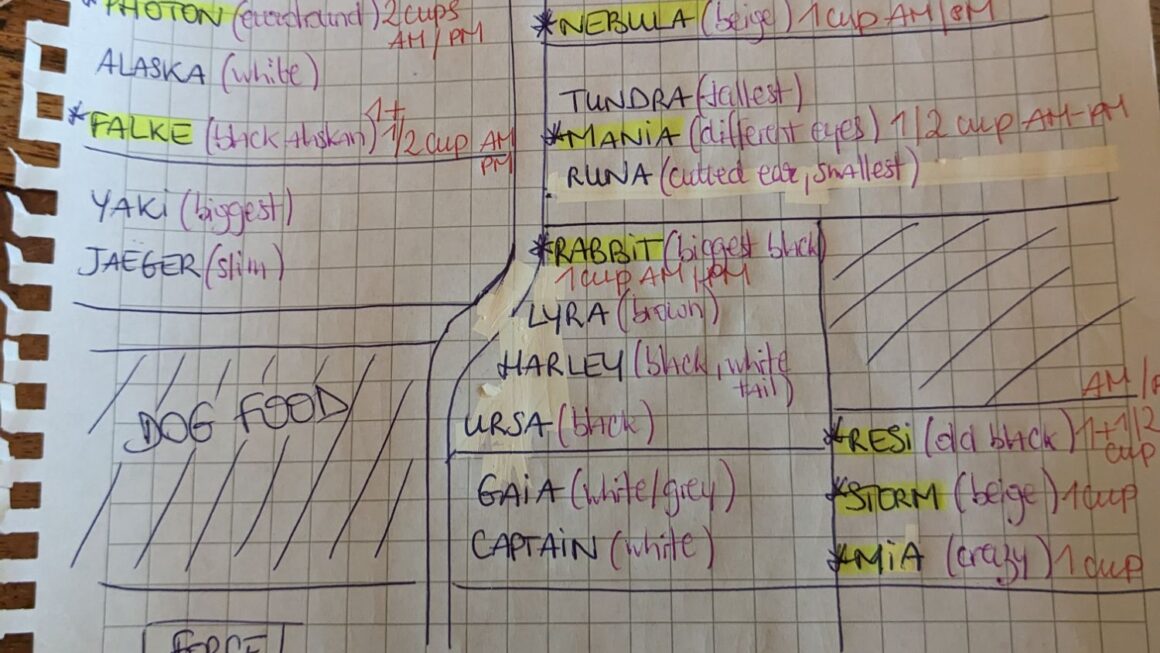 *PHOTON (greyhound) 2 cups
AM/PM
ALASKA (white)
*FALKE (black alaskan) 1+
1/2 cup AM
PM
YAKI (biggest)
JAEGER (slim)
DOG FOOD
*NEBULA (beige) 1 cup AM/PM
TUNDRA (tallest)
*MANIA (different eyes) 1/2 cup AM-PM
RUNA (cutted ear, smallest)
*RABBIT (biggest black)
1 cup AM/PM
LYRA (brown)
HARLEY (black, white
tail)
URSA (black)
GAIA (white/grey)
CAPTAIN (white)
AM/P
*RESI (old black) 1+1/2
cup
*STORM (beige) 1 cup
*MIA (crazy) 1 cup